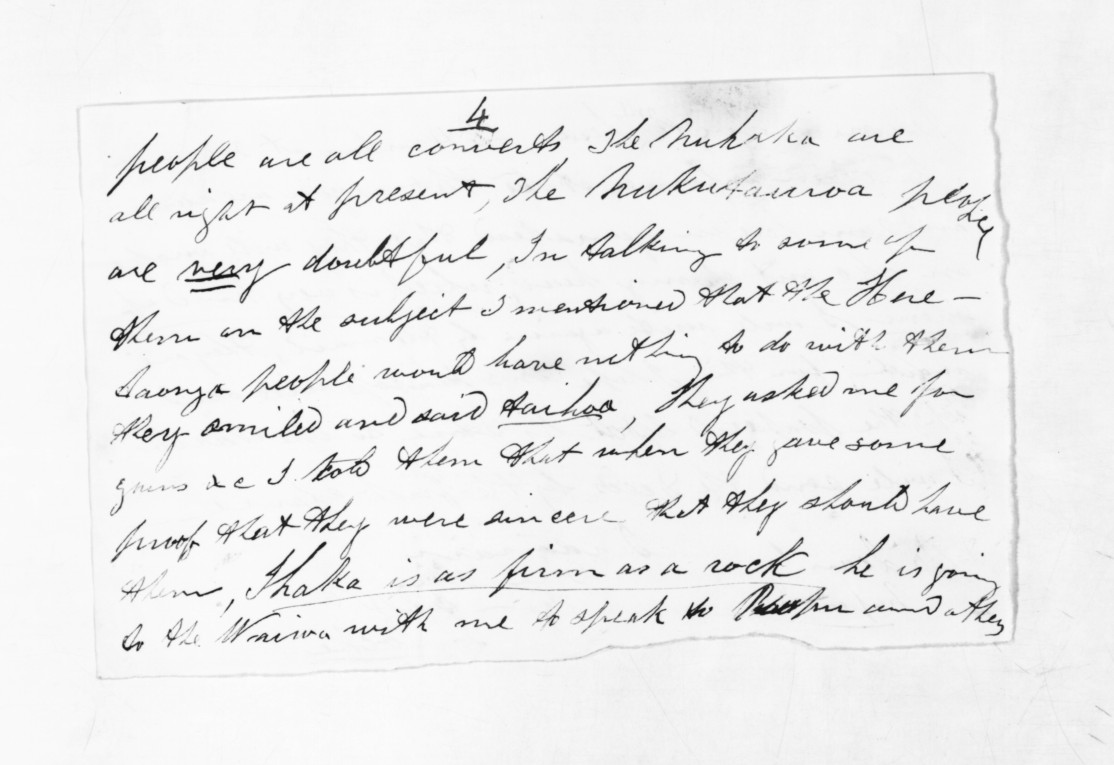 4
people are all converts The Nuhaka are
all right at present, The Nukutauroa people
are very doubtful, In talking to some of
them on the subject I mentioned that the Here-
taonga people would have nothing to do with them
they smiled and said taihoa, They asked me for
guns &c I told them that when they gave some
proof that they were sincere that they should have
them, Ihaka is as firm as a rock he is going
to the Wairoa with me to speak to and